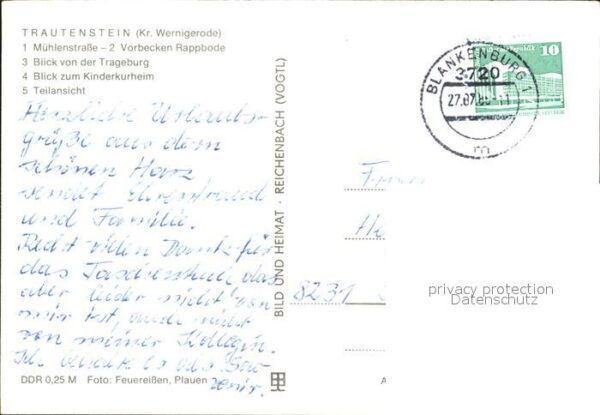 TRAUTENSTEIN (Kr. Wernigerode)
1 Mühlenstraße – 2 Vorbecken Rappbode
3 Blick von der Trageburg
4 Blick zum Kinderkurheim
5 Teilansicht
Herzliche Urlaubs-
grüße aus dem
schönen Harz
sendet Ehrentraud
und Familie.
Recht vielen Dank für
das das
aber leider nicht von
mir ist, auch nicht
von meiner Kollegin.
Ich es als
DDR 0,25 M Foto: Feuereißen, Plauen
BILD UND HEIMAT · REICHENBACH (VOGTL)
BLANKENBURG 1
3720
27.07.
m
10
8231
privacy protection
Datenschutz